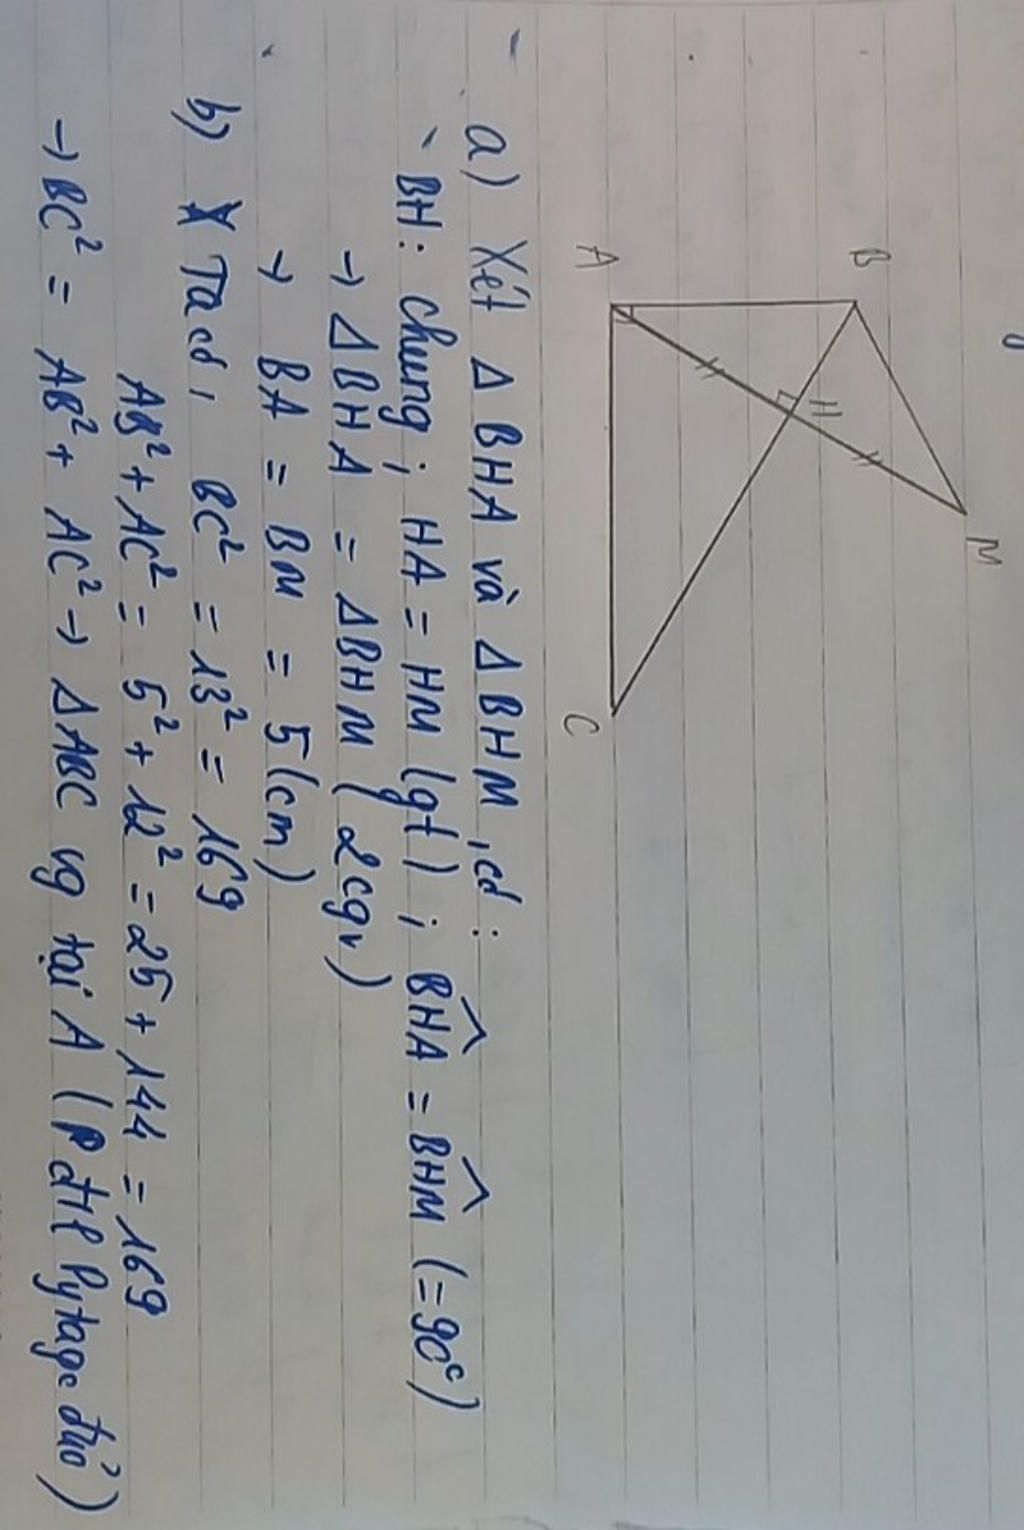 B
M
H
A
C
a) Xét Δ BHA và Δ BHM, có :
BH : chung ; HA = HM (gt) ; BHA = BHM (=90°)
→ Δ BHA = Δ BHM ( 2cgv)
→ BA = BM = 5 (cm)
b) Ta có, BC² = 13² = 169
AB² + AC² = 5² + 12² = 25 + 144 = 169
→ BC² = AB² + AC² → Δ ABC vg tại A ( đHl Pytago đảo )